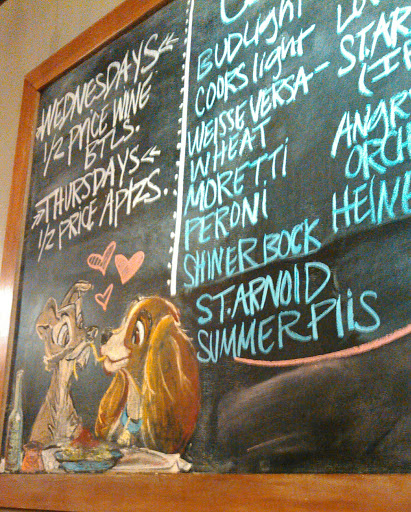 WEDNESDAYS
1/2 PRICE WINE
BTLS.
THURSDAYS
1/2 PRICE APTZS.
BUDLIGHT
COORS light
WEISSE VERSA
WHEAT
MORETTI
PERONI
SHINER BOCK
ST.ARNOID
SUMMER PIIS
ST.AR
ANGR
ORCH
HEINE